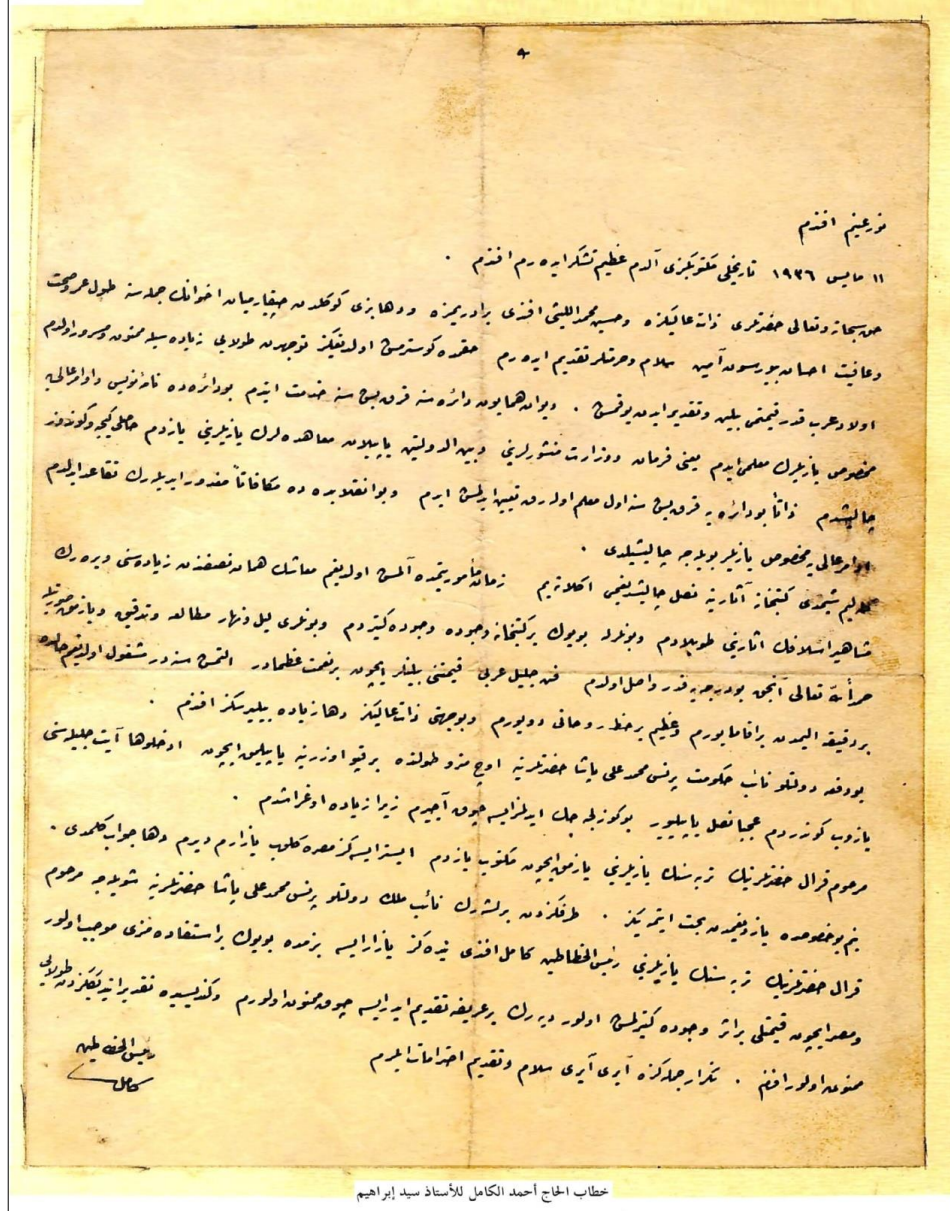 نور عينم افندم
١١ مايس ١٩٣٦ تاريخلى مكتوبكزى آلدم عظيم تشكر ايده رم افندم .
حق سبحانه وتعالى حضرتلرى ذات عاليكزه وحسين محمد الليثى افندى برادريمزه ودها بزى كوكلدن چيقارميان اخوانك جمله سنه طول عمر وصحت
وعافيت احسان بيورسون آمين سلام وحرمتلر تقديم ايده رم حقمده كوسترمش اولديغكز توجهدن طولايى زياده سيله ممنون ومسرور اولدم
اولاد عرب قدر قيمتمى بيلن وتقدير ايدن يوقمش . ديوان همايون دائره سنه قرق بش سنه خدمت ايتدم بودائره ده نامه نويس واوامر عاليه
مخصوص يازيلرك معلمى ايدم يعنى فرمان ووزارت منشورلرينى وبين الدولتين ياپيلان معاهده لرك يازيلرينى يازدم حاصلى كيجه وكوندوز
چاليشدم ذاتاً بودائره يه قرق بش سنه اول معلم اوله رق تعيين ايدلمش ايدم وبو انقلابده ده مكافاتاً مغدور ايديله رك تقاعد ايدلدم
اوامر عاليه مخصوص يازيلر بويله جه چاليشيلدى .
كله ليم شيمدى كتبخانه آثارينه نصل چاليشديغمى اكلاته يم زمان مأموريتمده آلمش اولديغم معاشك همان نصفندن زياده سنى ويره رك
مشاهير اسلافك آثارينى طوپلادم وبونلرله بويوك بر كتبخانه وجوده كتيردم وبونلرى ليل ونهار مطالعه وتدقيق ويازمق صورتيله
حمداً لله تعالى آنجق بودرجه يه قدر واصل اولدم فن جليل عربى قيمتنى بيلنلر ايچون بر نعمت عظمادر التمش سنه در مشغول اولديغم حالده
بر دقيقه اليمدن براقامايورم وعظيم بر حظ روحانى دويورم وبوجهتى ذات عاليكز دها زياده بيليرسكز افندم .
بودفعه دولتلو نائب حكومت پرنس محمد على پاشا حضرتلرينه اوچ مترو طولنده بر قپو اوزرينه ياپيلمق ايچون ادخلوها آيت جليله سنى
يازوب كوندردم عجبا نصل ياپيليور بو كوزلجه حك ايدلمزايسه چوق آجيرم زيرا زياده اوغراشدم .
مرحوم قرال حضرتلرينك تربه سنك يازيلرينى يازمق ايچون مكتوب يازدم ايسترايسه كز مصره كلوب يازارم ديرم دها جواب كلمدى .
بنم بوخصوصده يازديغمدن بحث ايتمه يكز . طرفكزدن برلشه رك نائب ملك دولتلو پرنس محمد على پاشا حضرتلرينه شويله جه مرحوم
قرال حضرتلرينك تربه سنك يازيلرينى رئيس الخطاطين كامل افندى بنده كز يازارايسه بزمده بويوك بر استفاده مزى موجب اولور
ومصر ايچون قيمتلى بر اثر وجوده كتيرلمش اولور ديه رك بر عريضه تقديم ايدرايسه چوق ممنون اولورم وكنديسيده تقدير ايتديككزدن طولايى
ممنون اولور افندم . تكرار جمله كزه آيرى آيرى سلام وتقديم احترامات ايلرم
رئيس الخطاطين
كامل
خطاب الحاج أحمد الكامل للأستاذ سيد إبراهيم